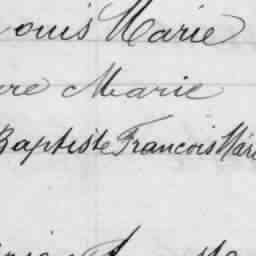 ouis Marie
re Marie
Baptiste Francois Mari